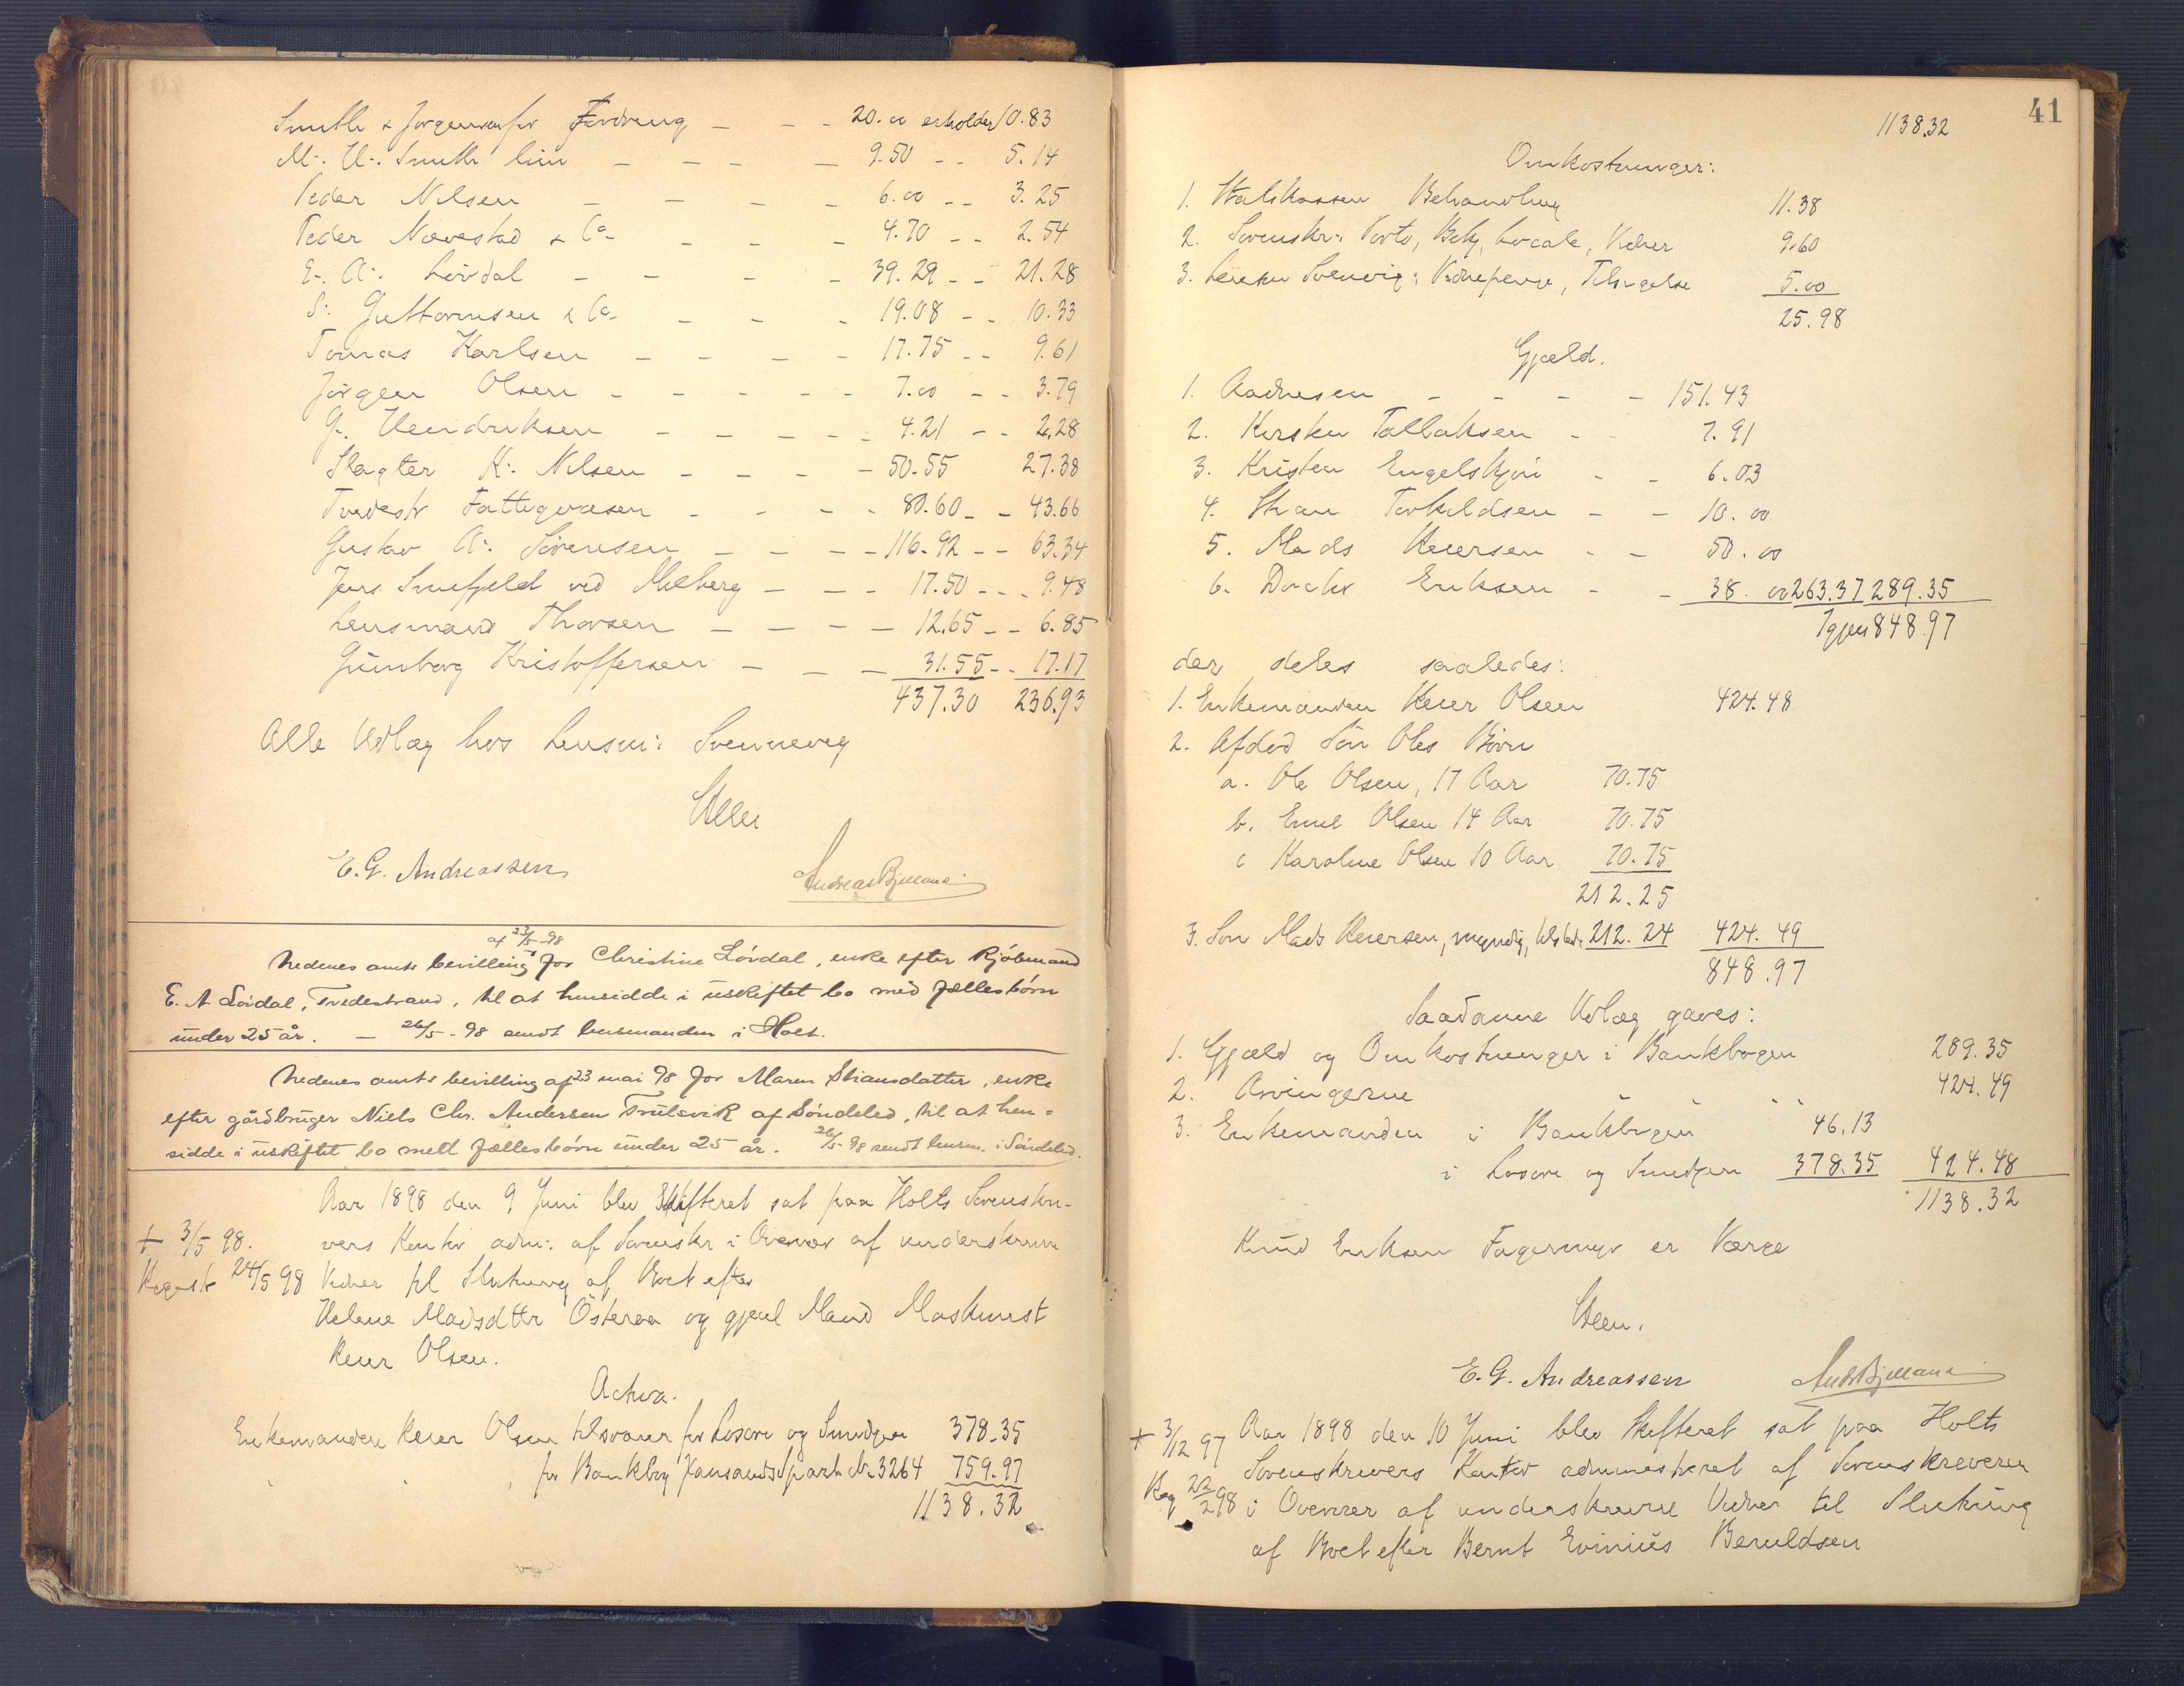 Smith & Jørgensen for Fordring - - - 20.00 erholder 10.83
M. U. Smith lim - - - - 9.50 - - 5.14
Peder Nilsen - - - - 6.00 - - 3.25
Peder Nævestad & Co - - - 4.70 - - 2.54
E. A. Løvdal - - - - 39.29 - - 21.28
S. Guttormsen & Co - - - 19.08 - - 10.33
Tomas Karlsen - - - - 17.75 - - 9.61
Jørgen Olsen - - - - - 7.00 - - 3.79
G. Hendriksen - - - - - 4.21 - - 2.28
Slagter K. Nilsen - - - - 50.55 27.38
Tvedestr Fattigvæsen - - - - 80.60 - - 43.66
Gustav A. Sørensen - - - - 116.92 - - 63.34
Jens Smefjeld ved Melberg - - - 17.50 - - - 9.48
Lensmand Thorsen - - - - 12.65 - - 6.85
Gunborg Kristoffersen - - - 31.55 - - 17.17
437.30 236.93
Alle Udlæg hos Lensm: Svenneveg
E. G. Andreassen
af 23/5-98
Nedenes amts bevilling for Christine Lövdal, enke efter Kjöbmand
E. A Lövdal, Tvedestrand, til at hensidde i uskiftet bo med fællesbörn
under 25 år. — 26/5-98 sendt lensmanden i Holt.
Nedenes amts bevilling af 23 mai 98 for Maren Stiansdatter, enke
efter gårdbruger Niels Chr. Andersen Trulsvik af Söndeled, til at hen=
sidde i uskiftet bo mett fællesbörn under 25 år. 26/5-98 sendt lensm. i Söndeled.
Aar 1898 den 9 Juni blev Skifteret sat paa Holts Sorenskri-
+ 3/5 98. vers Kontor adm: af Sorenskr i Overvær af underskrevne
24/5 98 Vidner til Slutning af Boet efter
Helene Madsdttr Østeraa og gjenl Mand Maskinist
Reier Olsen.
Activa.
Enkemanden Reier Olsen tilsvarer for Løsøre og Smedjen 378.35
" " for Bankbog Xansands Spareb No 3264 759.97
1138.32
41
1138.32
Omkostninger:
1. Statskassen Behandling 11.38
2. Sorenskr: Porto, Bekj, Locale, Vidner 9.60
3. Lensm Svenevig: Vidnepenge, Tilsigelse 5.00
25.98
Gjæld.
1. Aadnesen - - - - 151.43
2. Kirsten Tallaksen - 7.91
3. Kristen Engelskjøn - - 6.03
4. Stian Torkildsen - - 10.00
5. Mads Reiersen - - 50.00
6. Doctor Eriksen - - 38.00 263.37 289.35
Igjen 848.97
der deles saaledes:
1. Enkemanden Reier Olsen 424.48
2. Afdød Søn Oles Børn
a. Ole Olsen, 17 Aar 70.75
b. Emil Olsen 14 Aar 70.75
c Karoline Olsen 10 Aar 70.75
212.25
3. Søn Mads Reiersen, myndig, tilstede 212.24 424.49
848.97
Saadanne Udlæg gaves:
1. Gjæld og Omkostninger i Bankbogen 289.35
2. Arvingerne " " " 424.49
3. Enkemanden i Bankbogen 46.13
i Løsøre og Smedjen 378.35 424.48
1138.32
Knud Eriksen Fagermyr er Værge
E. G. Andreassen
+ 3/12 97 Aar 1898 den 10 Juni blev Skifteret sat paa Holts
Sorenskrivers Kontor administreret af Sorenskriveren
Reg 22/2 98 i Overvær af underskrevne Vidner til Slutning
af Boet efter Bernt Evinius Beruldsen